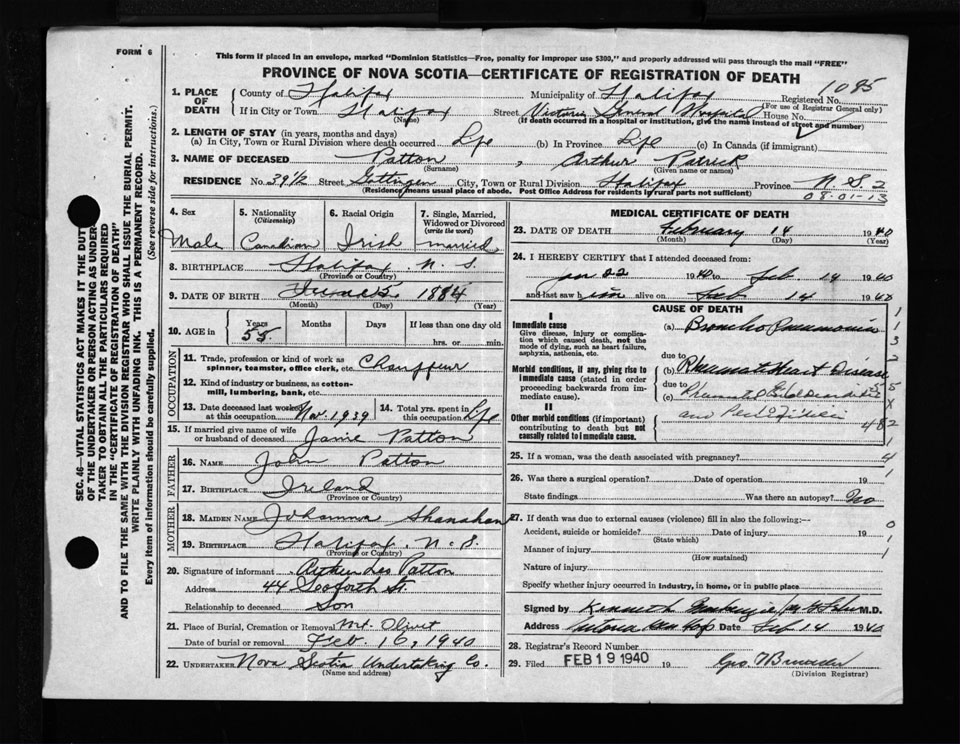 FORM 6
This form if placed in an envelope, marked "Dominion Statistics—Free, penalty for improper use $300," and properly addressed will pass through the mail "FREE"
PROVINCE OF NOVA SCOTIA—CERTIFICATE OF REGISTRATION OF DEATH
1085
1. PLACE OF DEATH
County of Halifax Municipality of Halifax Registered No.
(For use of Registrar General only)
If in City or Town Halifax Street Victoria General Hospital House No.
(Name) (If death occurred in a hospital or institution, give the name instead of street and number)
2. LENGTH OF STAY (in years, months and days)
(a) In City, Town or Rural Division where death occurred Life (b) In Province Life (c) In Canada (if immigrant)
3. NAME OF DECEASED Patton, Arthur Patrick
(Surname) (Given name or names)
RESIDENCE No. 39 1/2 Street Gottingen City, Town or Rural Division Halifax Province N.S. 2
(Residence means usual place of abode. Post Office Address for residents in rural parts not sufficient)
08-01-13
4. Sex 5. Nationality (Citizenship) 6. Racial Origin 7. Single, Married, Widowed or Divorced (write the word)
Male Canadian Irish married
8. BIRTHPLACE Halifax N. S.
(Province or Country)
9. DATE OF BIRTH 1884
(Month) (Day) (Year)
10. AGE in Years Months Days If less than one day old
55 hrs. or min.
OCCUPATION
11. Trade, profession or kind of work as spinner, teamster, office clerk, etc. Chauffeur
12. Kind of industry or business, as cotton-mill, lumbering, bank, etc.
13. Date deceased last worked at this occupation Nov. 1939 14. Total yrs. spent in this occupation Life
15. If married give name of wife or husband of deceased Janie Patton
FATHER
16. NAME John Patton
17. BIRTHPLACE Ireland
(Province or Country)
MOTHER
18. MAIDEN NAME Johanna Shanahan
19. BIRTHPLACE Halifax, N. S.
(Province or Country)
20. Signature of informant Arthur Leo Patton
Address 44 Seaforth St.
Relationship to deceased Son
21. Place of Burial, Cremation or Removal Mt. Olivet
Date of burial or removal Feb 16, 1940
22. UNDERTAKER Nova Scotia Undertaking Co.
(Name and address)
MEDICAL CERTIFICATE OF DEATH
23. DATE OF DEATH February 14 1940
(Month) (Day) (Year)
24. I HEREBY CERTIFY that I attended deceased from:
Jan 22 1940 to Feb 14 1940
and last saw him alive on Feb 14 1940
CAUSE OF DEATH
I
Immediate cause
Give disease, injury or complication which caused death, not the mode of dying, such as heart failure, asphyxia, asthenia, etc.
(a) Broncho Pneumonia
due to
Morbid conditions, if any, giving rise to immediate cause (stated in order proceeding backwards from immediate cause).
(b) Rheumatic Heart Disease
due to
(c)
II
Other morbid conditions (if important) contributing to death but not causally related to immediate cause.
25. If a woman, was the death associated with pregnancy?
26. Was there a surgical operation? Date of operation
State findings Was there an autopsy? No
27. If death was due to external causes (violence) fill in also the following:—
Accident, suicide or homicide? Date of injury 19
(State which)
Manner of injury
(How sustained)
Nature of injury
Specify whether injury occurred in industry, in home, or in public place
Signed by Kenneth M.D.
Address Victoria Gen Hosp Date Feb 14 1940
28. Registrar's Record Number
29. Filed FEB 19 1940 19
(Division Registrar)
SEC. 46—VITAL STATISTICS ACT MAKES IT THE DUTY
OF THE UNDERTAKER OR PERSON ACTING AS UNDER-
TAKER TO OBTAIN ALL THE PARTICULARS REQUIRED
IN THE "CERTIFICATE OF REGISTRATION OF DEATH"
AND TO FILE THE SAME WITH THE DIVISION REGISTRAR WHO SHALL ISSUE THE BURIAL PERMIT.
WRITE PLAINLY WITH UNFADING INK. THIS IS A PERMANENT RECORD.
Every item of information should be carefully supplied. (See reverse side for instructions.)